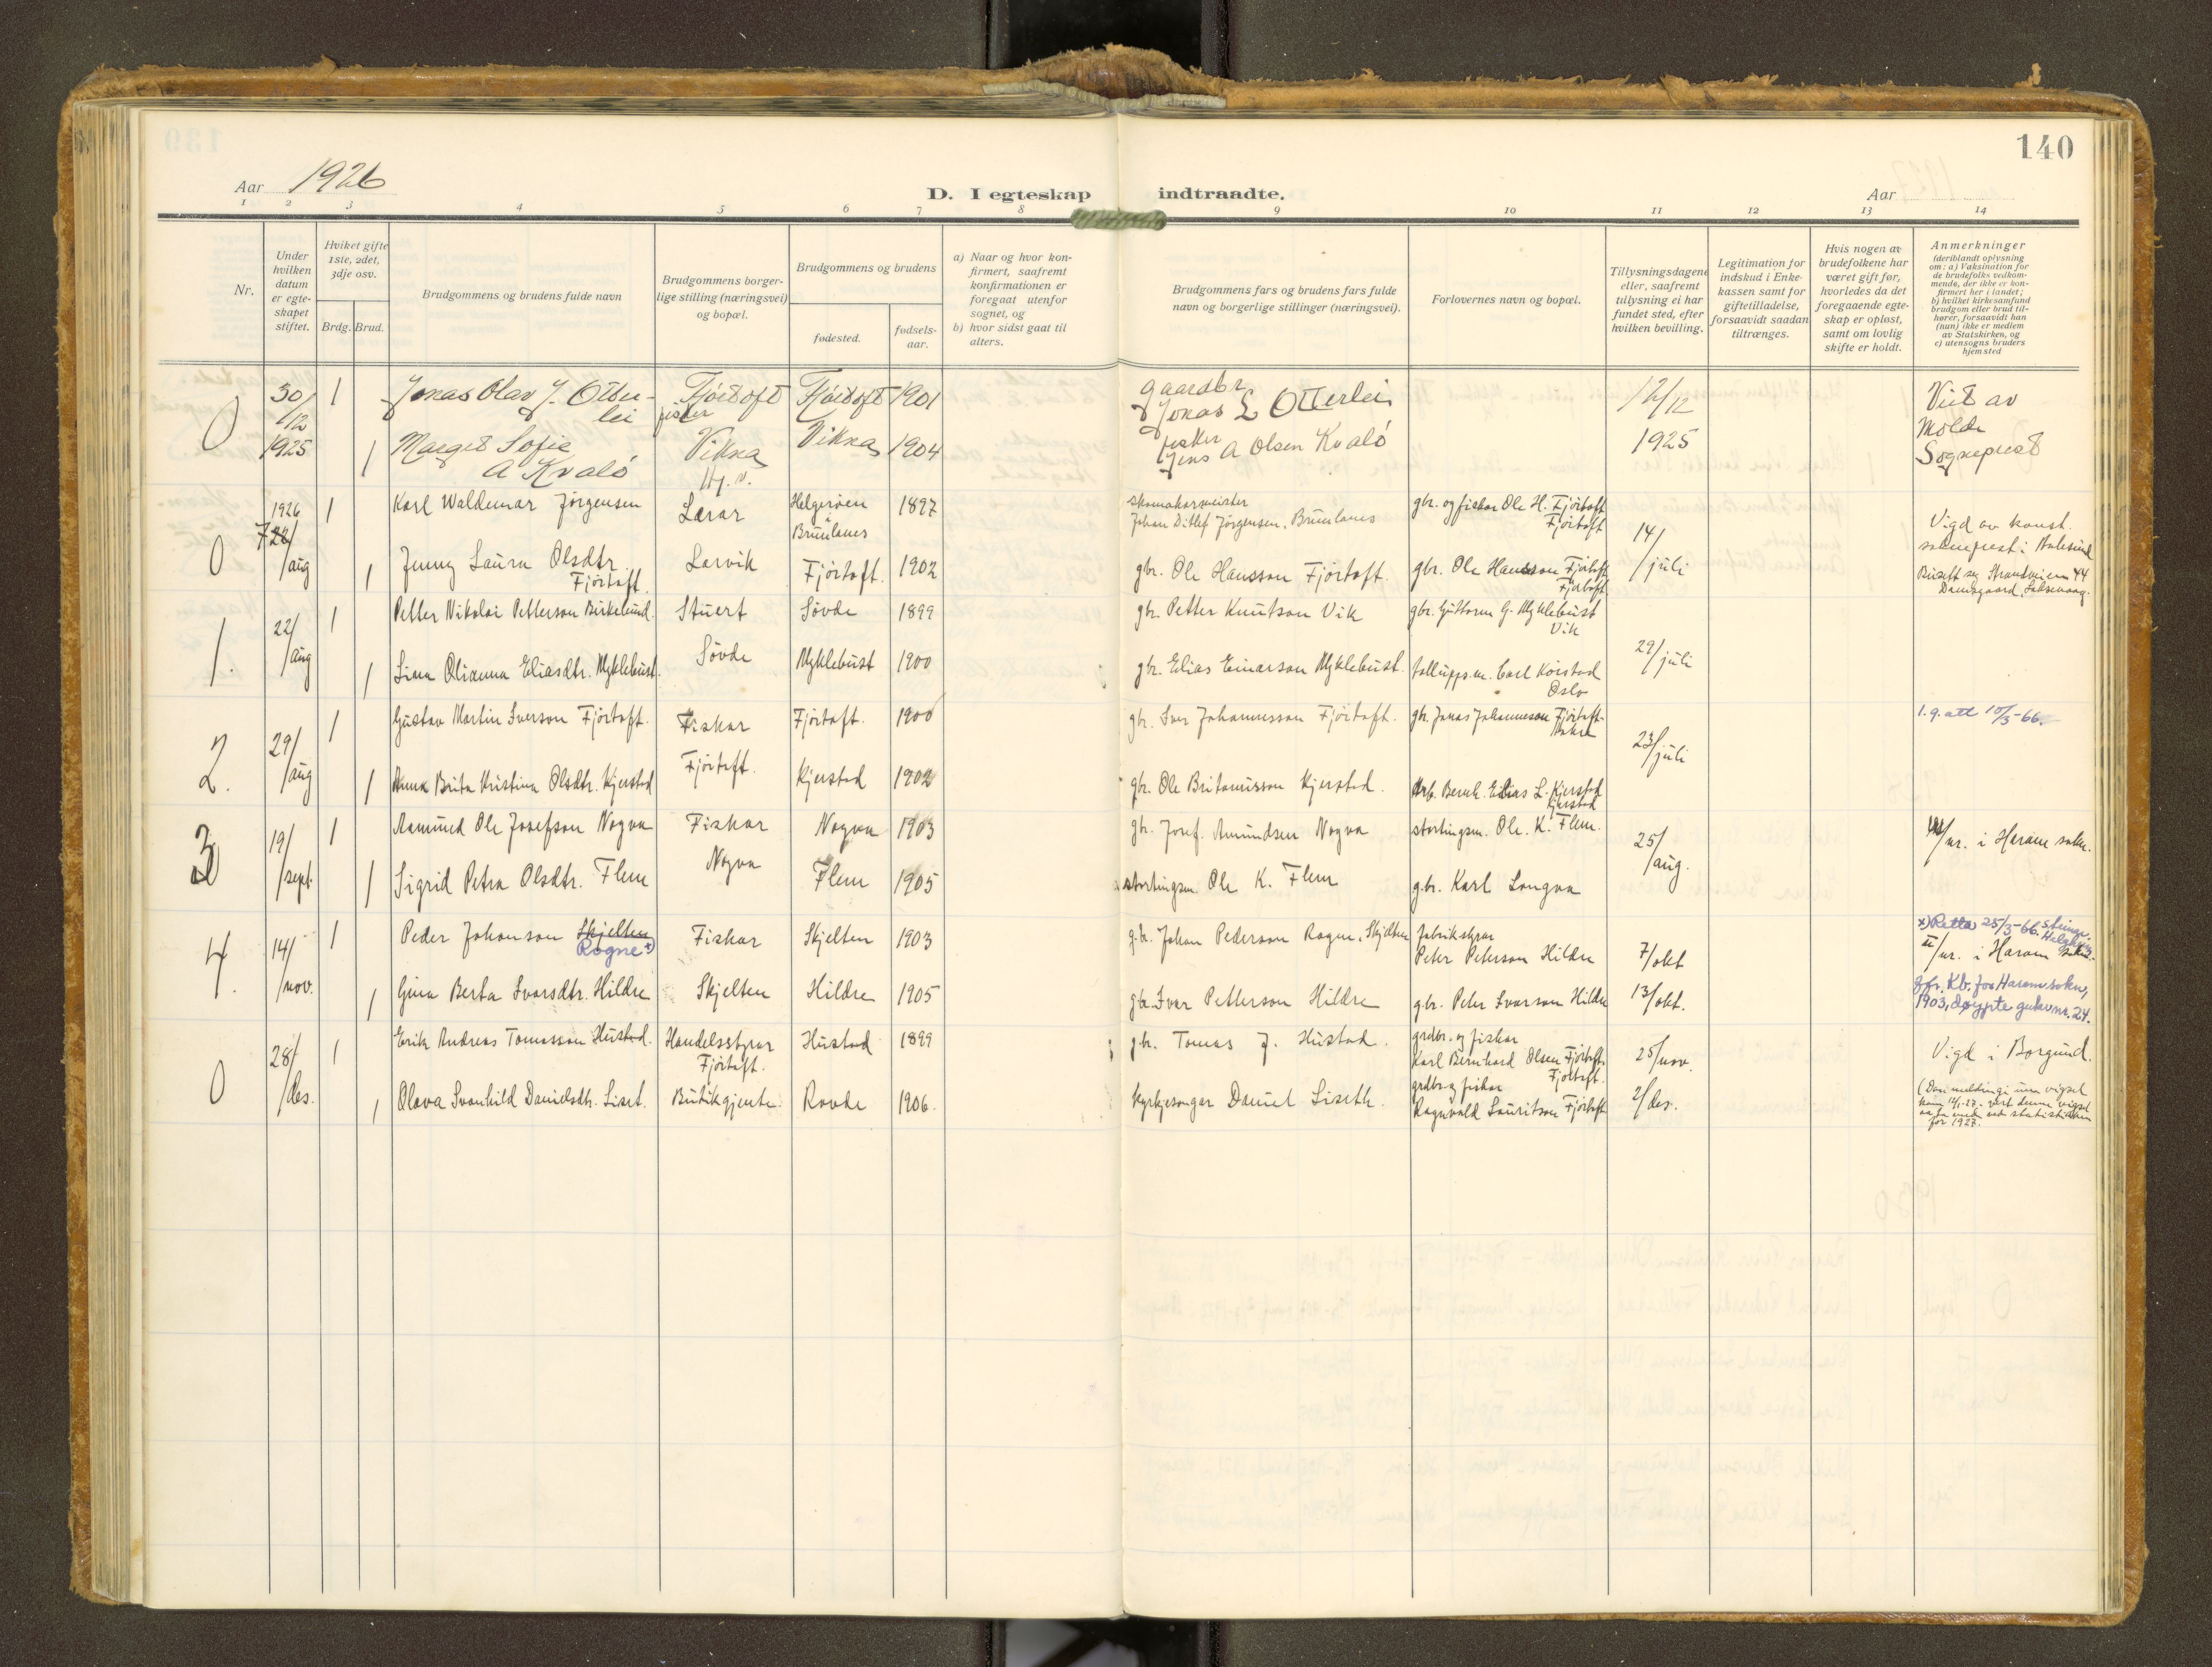 140
Aar 1926
D. I egteskap indtraadte.
Aar
1 2 3 4 5 6 7 8 9 10 11 12 13 14
Nr.
Under hvilken datum er egteskapet stiftet.
Hvilket gifte 1ste, 2det, 3dje osv.
Brdg. Brud.
Brudgommens og brudens fulde navn
Brudgommens borgerlige stilling (næringsvei) og bopæl.
Brudgommens og brudens
fødested.
fødselsaar.
a) Naar og hvor konfirmert, saafremt konfirmationen er foregaat utenfor sognet, og
b) hvor sidst gaat til alters.
Brudgommens fars og brudens fars fulde navn og borgerlige stillinger (næringsvei).
Forlovernes navn og bopæl.
Tillysningsdagene eller, saafremt tillysning ei har fundet sted, efter hvilken bevilling.
Legitimation for indskud i Enkekassen samt for giftetilladelse, forsaavidt saadan tiltrænges.
Hvis nogen av brudefolkene har været gift før, hvorledes da det foregaaende egteskap er opløst, samt om lovlig skifte er holdt.
Anmerkninger (deriblandt oplysning om: a) Vaksination for de brudefolks vedkommende, der ikke er konfirmert her i landet; b) hvilket kirkesamfund brudgom eller brud tilhører, forsaavidt han (hun) ikke er medlem av Statskirken, og c) utensogns bruders hjemsted
0 30/12 1925 1 Jonas Olav J. Otterlei fisker Fjørtoft Fjørtoft 1901 gaardbr Jonas L Otterlei 12/12 1925 Viet av Molde Sogneprest
1 Marget Sofie A Kvalø Vikna Vikna 1904 fisker Jens A Olsen Kvalø
0 1926 7/aug 1 Karl Waldemar Jørgensen Lærar Helgerøen Brunlanes 1897 skomakarmeister Johan Ditlef Jørgensen, Brunlanes gbr. og fiskar Ole H. Fjørtoft Fjørtoft 14/juli Vigd av konst. sokneprest i Aalesund
1 Jenny Laura Olsdtr. Fjørtoft Larvik Fjørtoft. 1902 gbr. Ole Hansson Fjørtoft. gbr. Ole Hansson Fjørtoft Fjørtoft Busett seg Strandveien 44 Damsgaard, Laksevaag.
1. 22/aug 1 Petter Nikolai Petterson Birkelund. Stuert Søvde 1899 gbr. Petter Knutson Vik gbr. Guttorm G. Myklebust Vik 29/juli
1 Lina Olianna Eliasdtr. Myklebust. Søvde Myklebust 1900 gbr. Elias Einarson Myklebust. tollupps.m. Carl Korstad Oslo
2. 29/aug 1 Gustav Martin Iverson Fjørtoft. Fiskar Fjørtoft. 1900 gbr. Iver Johannesson Fjørtoft. gbr. Jonas Johannesson Fjørtoft 23/juli l.g. att 10/3-66.
1 Anna Brita Kristina Olsdtr. Kjerstad Fjørtoft. Kjerstad 1902 gbr. Ole Kjerstad. Arb. Bernh. Elias L. Kjerstad Kjerstad
3 19/sept. 1 Aamund Ole Josefson Nogva Fiskar Nogva 1903 gbr. Josef Amundsen Nogva stortingsm. Ole K. Flem. 25/aug. nr. i Haram sokn.
1 Sigrid Petra Olsdtr. Flem Nogva Flem 1905 stortingsm. Ole K. Flem gbr. Karl Longva
4. 14/nov. 1 Peder Johanson Skjelten Rogne x) Fiskar Skjelten 1903 gbr. Johan Pederson Rogne, Skjelten fabrikstyrar Peter Peterson Hildre 7/okt x) Retta 25/3-66. II/nr. i Haram sokn.
1 Gina Berta Ivarsdtr. Hildre Skjelten Hildre 1905 gbr. Ivar Petterson Hildre gbr. Peter Ivarson Hildre 13/okt. Jfr. Kb. for Haram sokn, 1903, døypte gutar nr. 24.
0 28/des. 1 Erik Andreas Tomasson Hustad. Handelsstyrar Fjørtoft. Hustad 1899 gbr. Tomas J. Hustad. grdbr. og fiskar Karl Bernhard Olsen Fjørtoft Fjørtoft. 25/nov. Vigd i Borgund.
1 Olava Svanhild Danielsdtr. Liset. Butikgjente. Rovde 1906. Kyrkjesongar Daniel Liseth. grdbr. og fiskar Ragnvald Lauritson Fjørtoft 2/des. (Daa meldingi um vigsel kom 14/1-27. vert denne vigsel med ved statistikken for 1927.